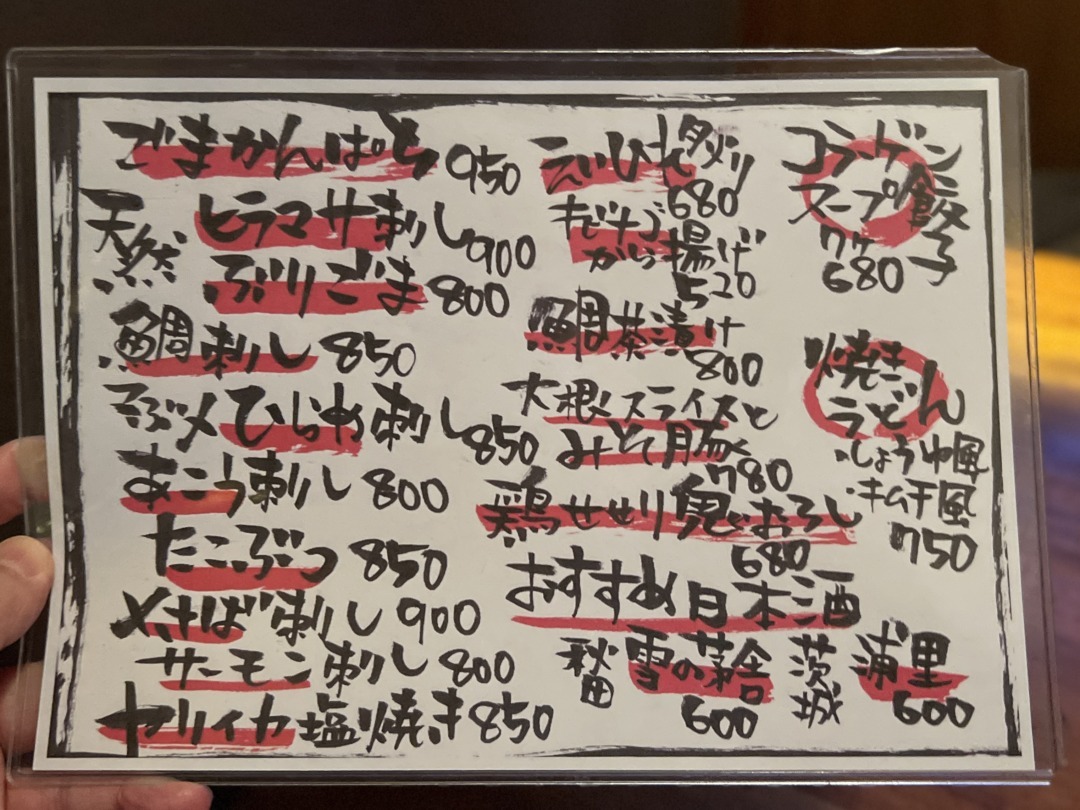 ごまかんぱち 950
天然 ヒラマサ刺し 900
ぶりごま 800
鯛刺し 850
こぶ〆ひらめ刺し 850
あこう刺し 800
たこぶつ 850
〆さば刺し 900
サーモン刺し 800
ヤリイカ塩焼き 850
えいひれ炙り
680
キビナゴ
から揚げ
520
鯛茶漬け
800
大根スライスと
みそ豚
780
鶏せせり鬼おろし
680
おすすめ日本酒
秋田 雪の茅舎
600
茨城 浦里
600
コラーゲン
スープ餃子
7ヶ
680
焼き
うどん
・しょうゆ風
・キムチ風
750